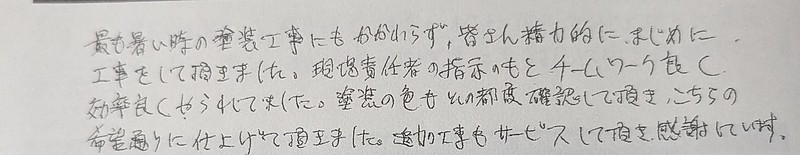 最も暑い時の塗装工事にもかかわらず、皆さん精力的に、まじめに
工事をして頂きました。現場責任者の指示のもと、チームワーク良く
効率良くやられてました。塗装の色もその都度確認して頂き、こちらの
希望通りに仕上げて頂きました。追加工事もサービスして頂き、感謝しています。